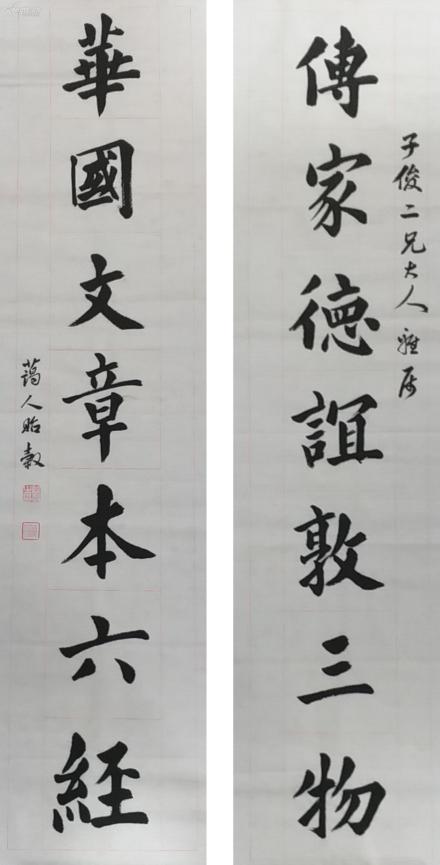 子俊二兄大人雅属
傳家德誼敦三物
華國文章本六經
藹人貽穀